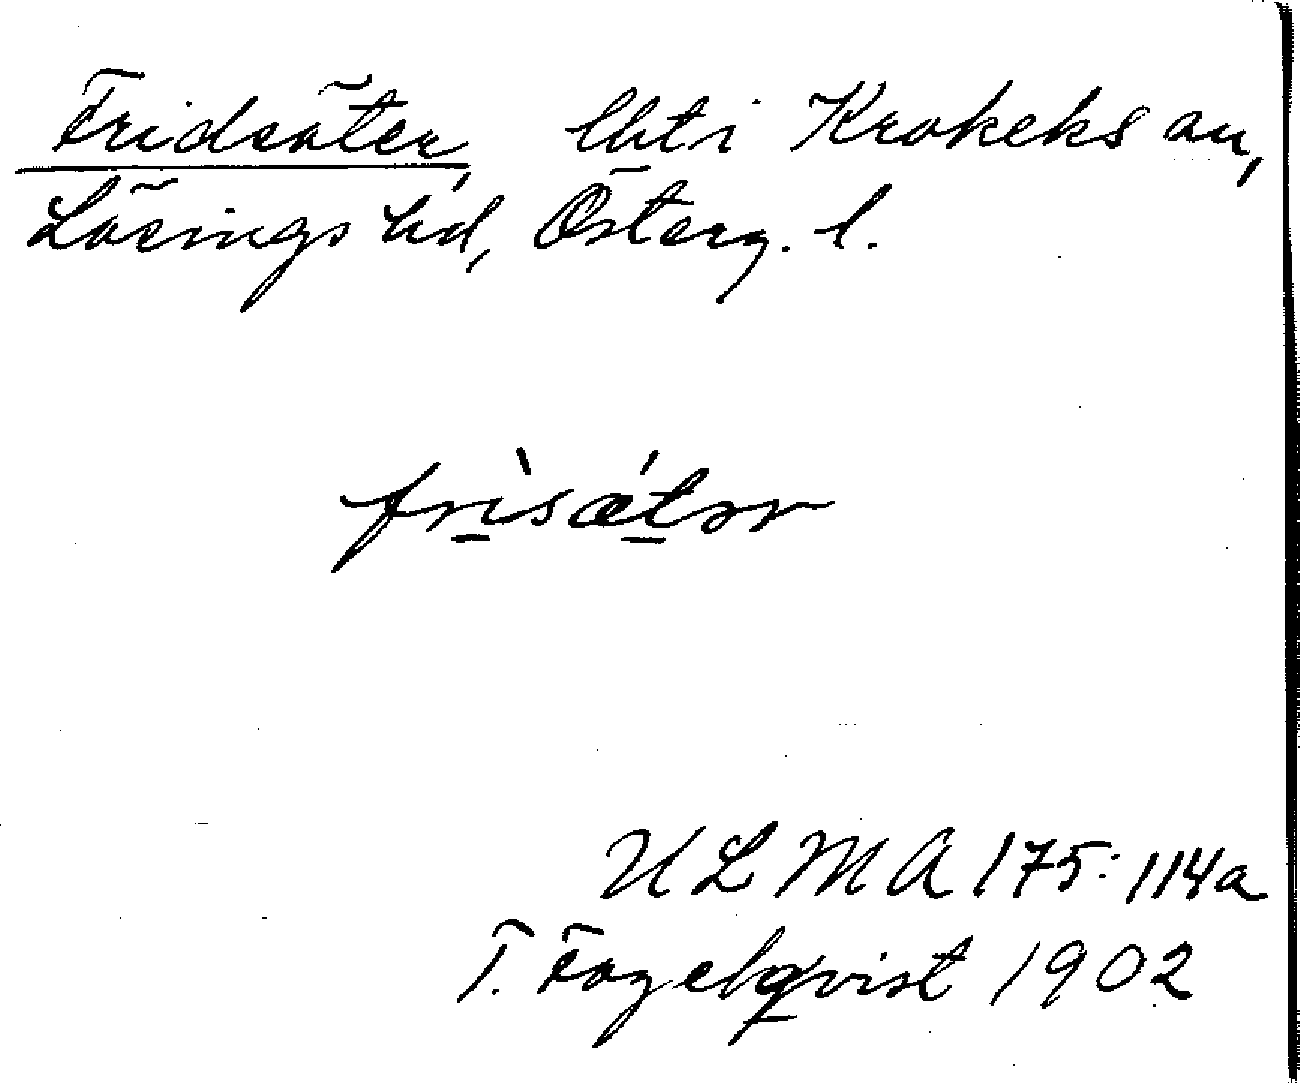 Fridsäter, lhti Krokeks an,
Lösings hd, Österg. l.
frìsǽtər
ULMA 175:114a
T. Fogelqvist 1902